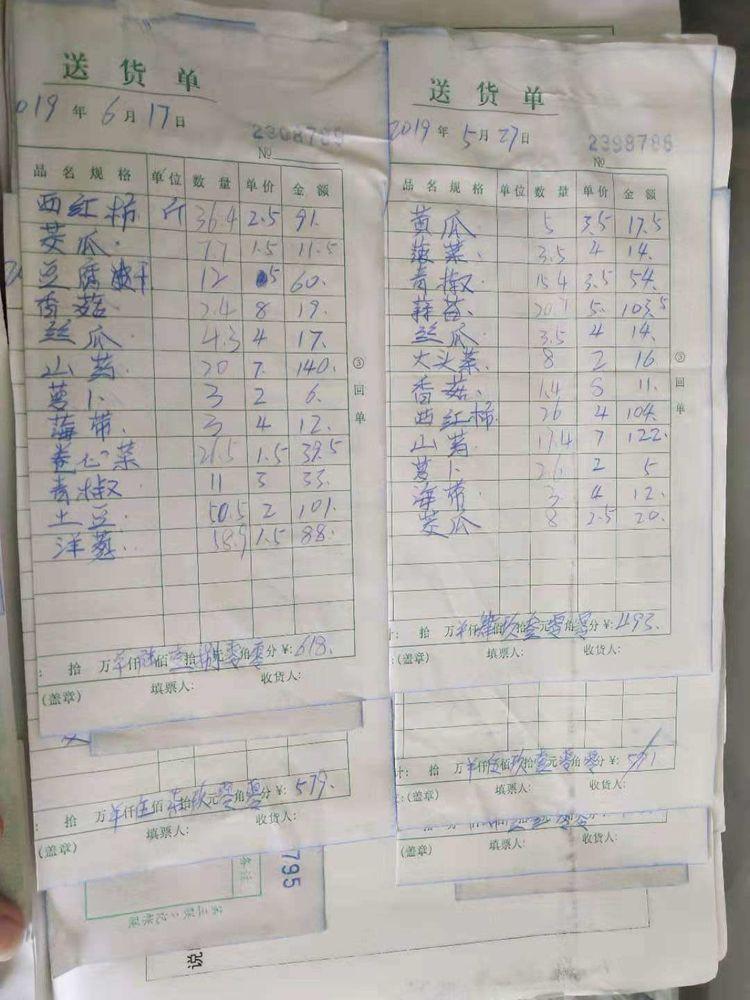 送货单
019 年 6 月 17 日
2398789
№
品名规格 单位 数量 单价 金额
西红柿 斤 36.4 2.5 91.
茭瓜 7.7 1.5 11.5
豆腐 干 12 5 60.
香菇 2.4 8 19.
丝瓜 4.3 4 17.
山药 20 7. 140.
萝卜 3 2 6.
海带 3 4 12.
卷心菜 1.5 39.5
青椒 11 3 33.
土豆 50.5 2 101.
洋葱 58.9 1.5 88.
拾 万 仟陆佰 拾捌元零角零分 ¥: 618.
(盖章) 填票人: 收货人:
③回单
拾 万 仟伍佰 拾玖元零角零分 ¥: 579.
(盖章) 填票人: 收货人:
795
送货单
2019 年 5 月 27 日
2398786
№
品名规格 单位 数量 单价 金额
黄瓜 5 3.5 17.5
菠菜 3.5 4 14.
青椒 15.4 3.5 54.
蒜苔 20.7 5. 103.5
丝瓜 3.5 4 14.
大头菜 8 2 16
香菇 1.4 8 11.
西红柿 26 4 104.
山药 17.4 7 122.
萝卜 2.6 2 5
海带 3 4 12.
茭瓜 8 2.5 20.
计: 拾 万 仟肆佰玖拾叁元零角零分 ¥: 493.
(盖章) 填票人: 收货人:
③回单
计: 拾 万 仟伍佰 拾壹元零角零分 ¥:
(盖章) 填票人: 收货人:
(盖章) 填票人: 收货人:
说